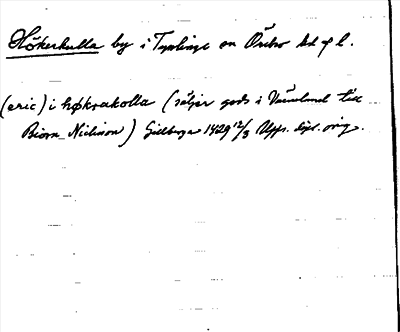 Hökerkulla by i Tysslinge sn Örebro hd o l.
(eric) i høksakolla (säljer gods i Värmland till
Biorn Nielsson) Gillberga 1429 12/3 Upps. dipl. orig.